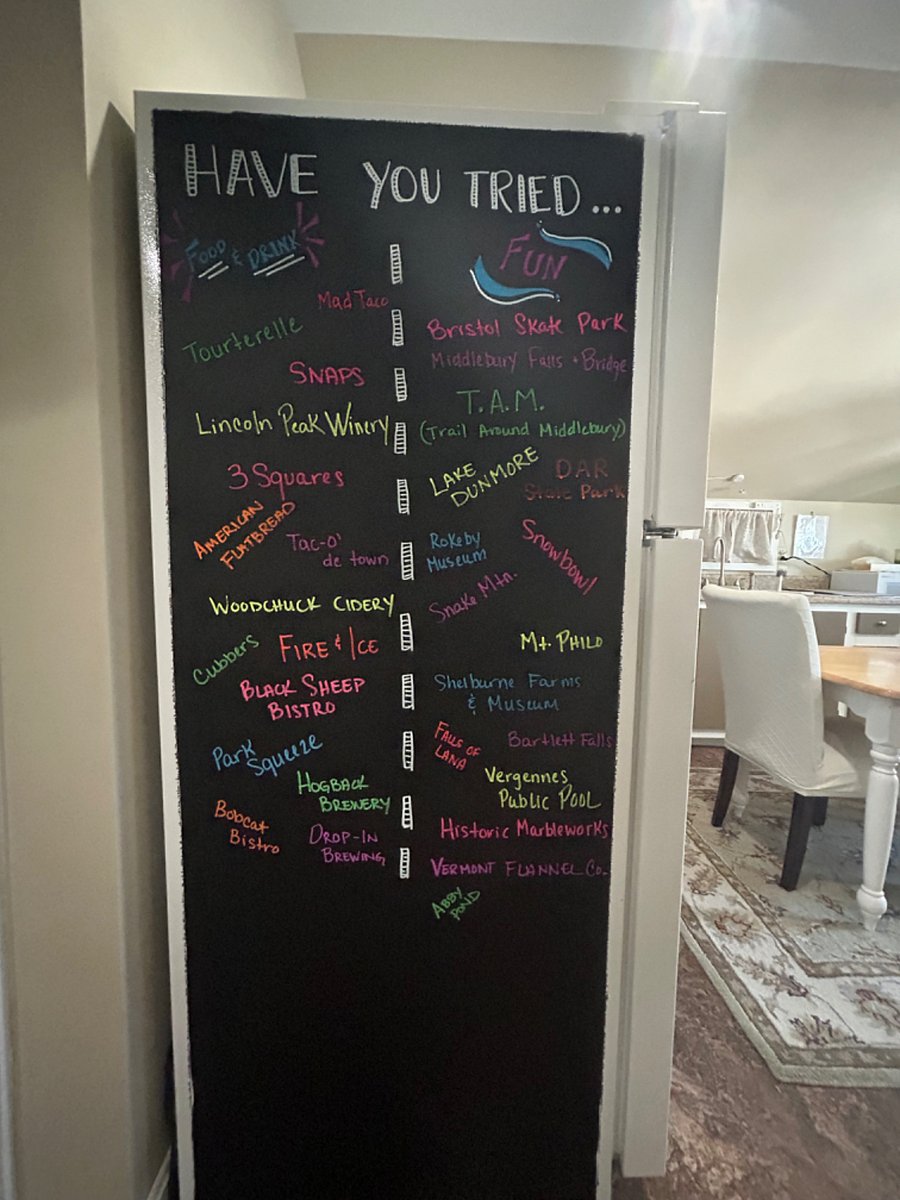 HAVE YOU TRIED...
FOOD & DRINK
Mad Taco
Tourterelle
SNAPS
Lincoln Peak Winery
3 Squares
AMERICAN
FLATBREAD
Tac-O'
de town
WOODCHUCK CIDERY
Cubbers
FIRE & ICE
BLACK SHEEP
BISTRO
Park
Squeeze
HOGBACK
BREWERY
Bobcat
Bistro
DROP-IN
BREWING
FUN
Bristol Skate Park
Middlebury Falls + Bridge
T.A.M.
(Trail Around Middlebury)
LAKE
DUNMORE
DAR
State Park
Rokeby
Museum
Snowbowl
Snake Mtn.
Mt. PHILO
Shelburne Farms
& Museum
FALLS OF
LANA
Bartlett Falls
Vergennes
Public Pool
Historic Marbleworks
VERMONT FLANNEL Co.
ABBY
POND